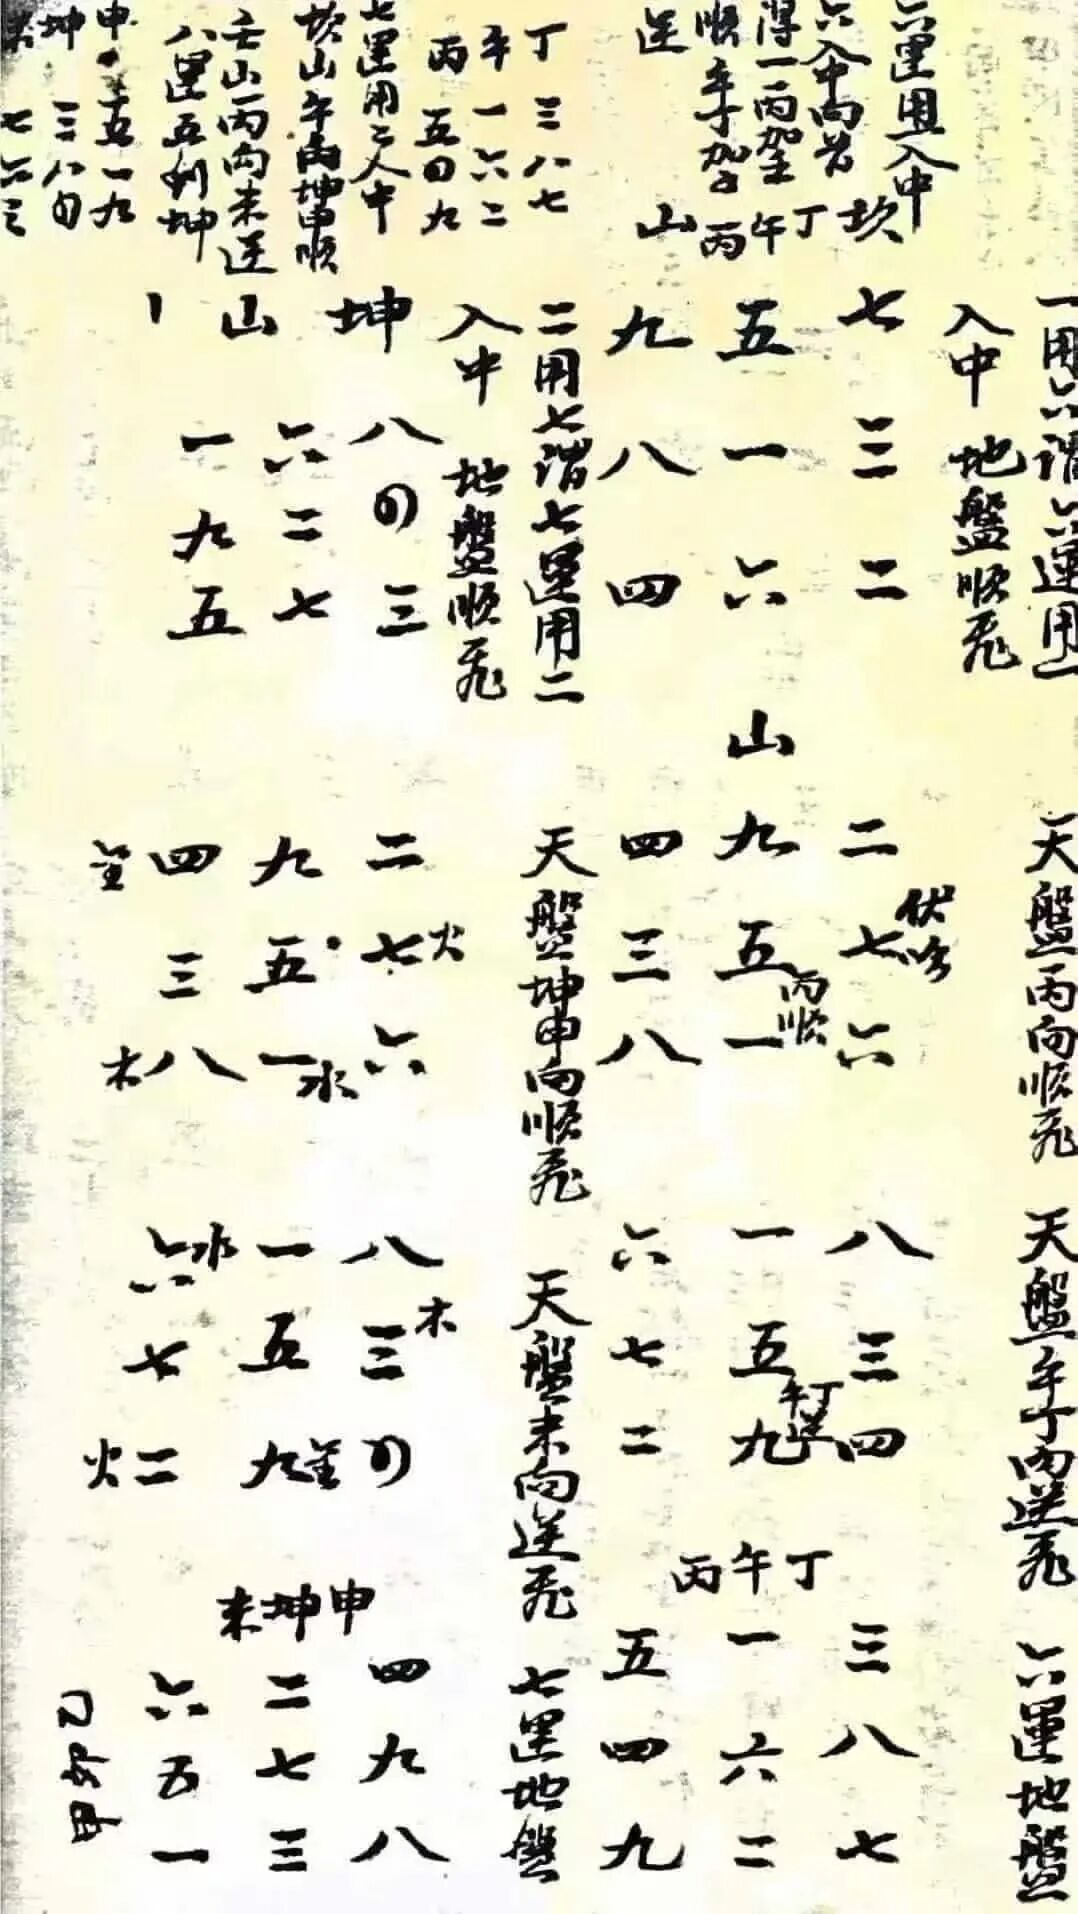 六運用入中
六入中向首
得一丙
順
逆
丁 三八七
午 一六二
丙 五四九
七運用二入中
坎山午
壬山丙向未逆
八運五到坤
申 五一九
坤 三八四
一用六谓六運用一
入中 地盤順飛
天盤丙向順飛
天盤午丁向逆飛
六運地盤
坎
丁午丙
山
七三二
五一六
九八四
山
二七六
伏吟
九五一
丙順
四三八
八三四
一五九
午丁逆
六七二
丁午丙
三八七
一六二
五四九
二用七谓七運用二
入中 地盤順飛
天盤坤申向順飛
天盤未向逆飛
七運地盤
坤
山
八四三
六二七
一九五
二七六
火
九五一
水
四三八
金
木
八三四
木
一五九
金
六七二
水
火
申坤未
四九八
二七三
六五一
乙卯甲